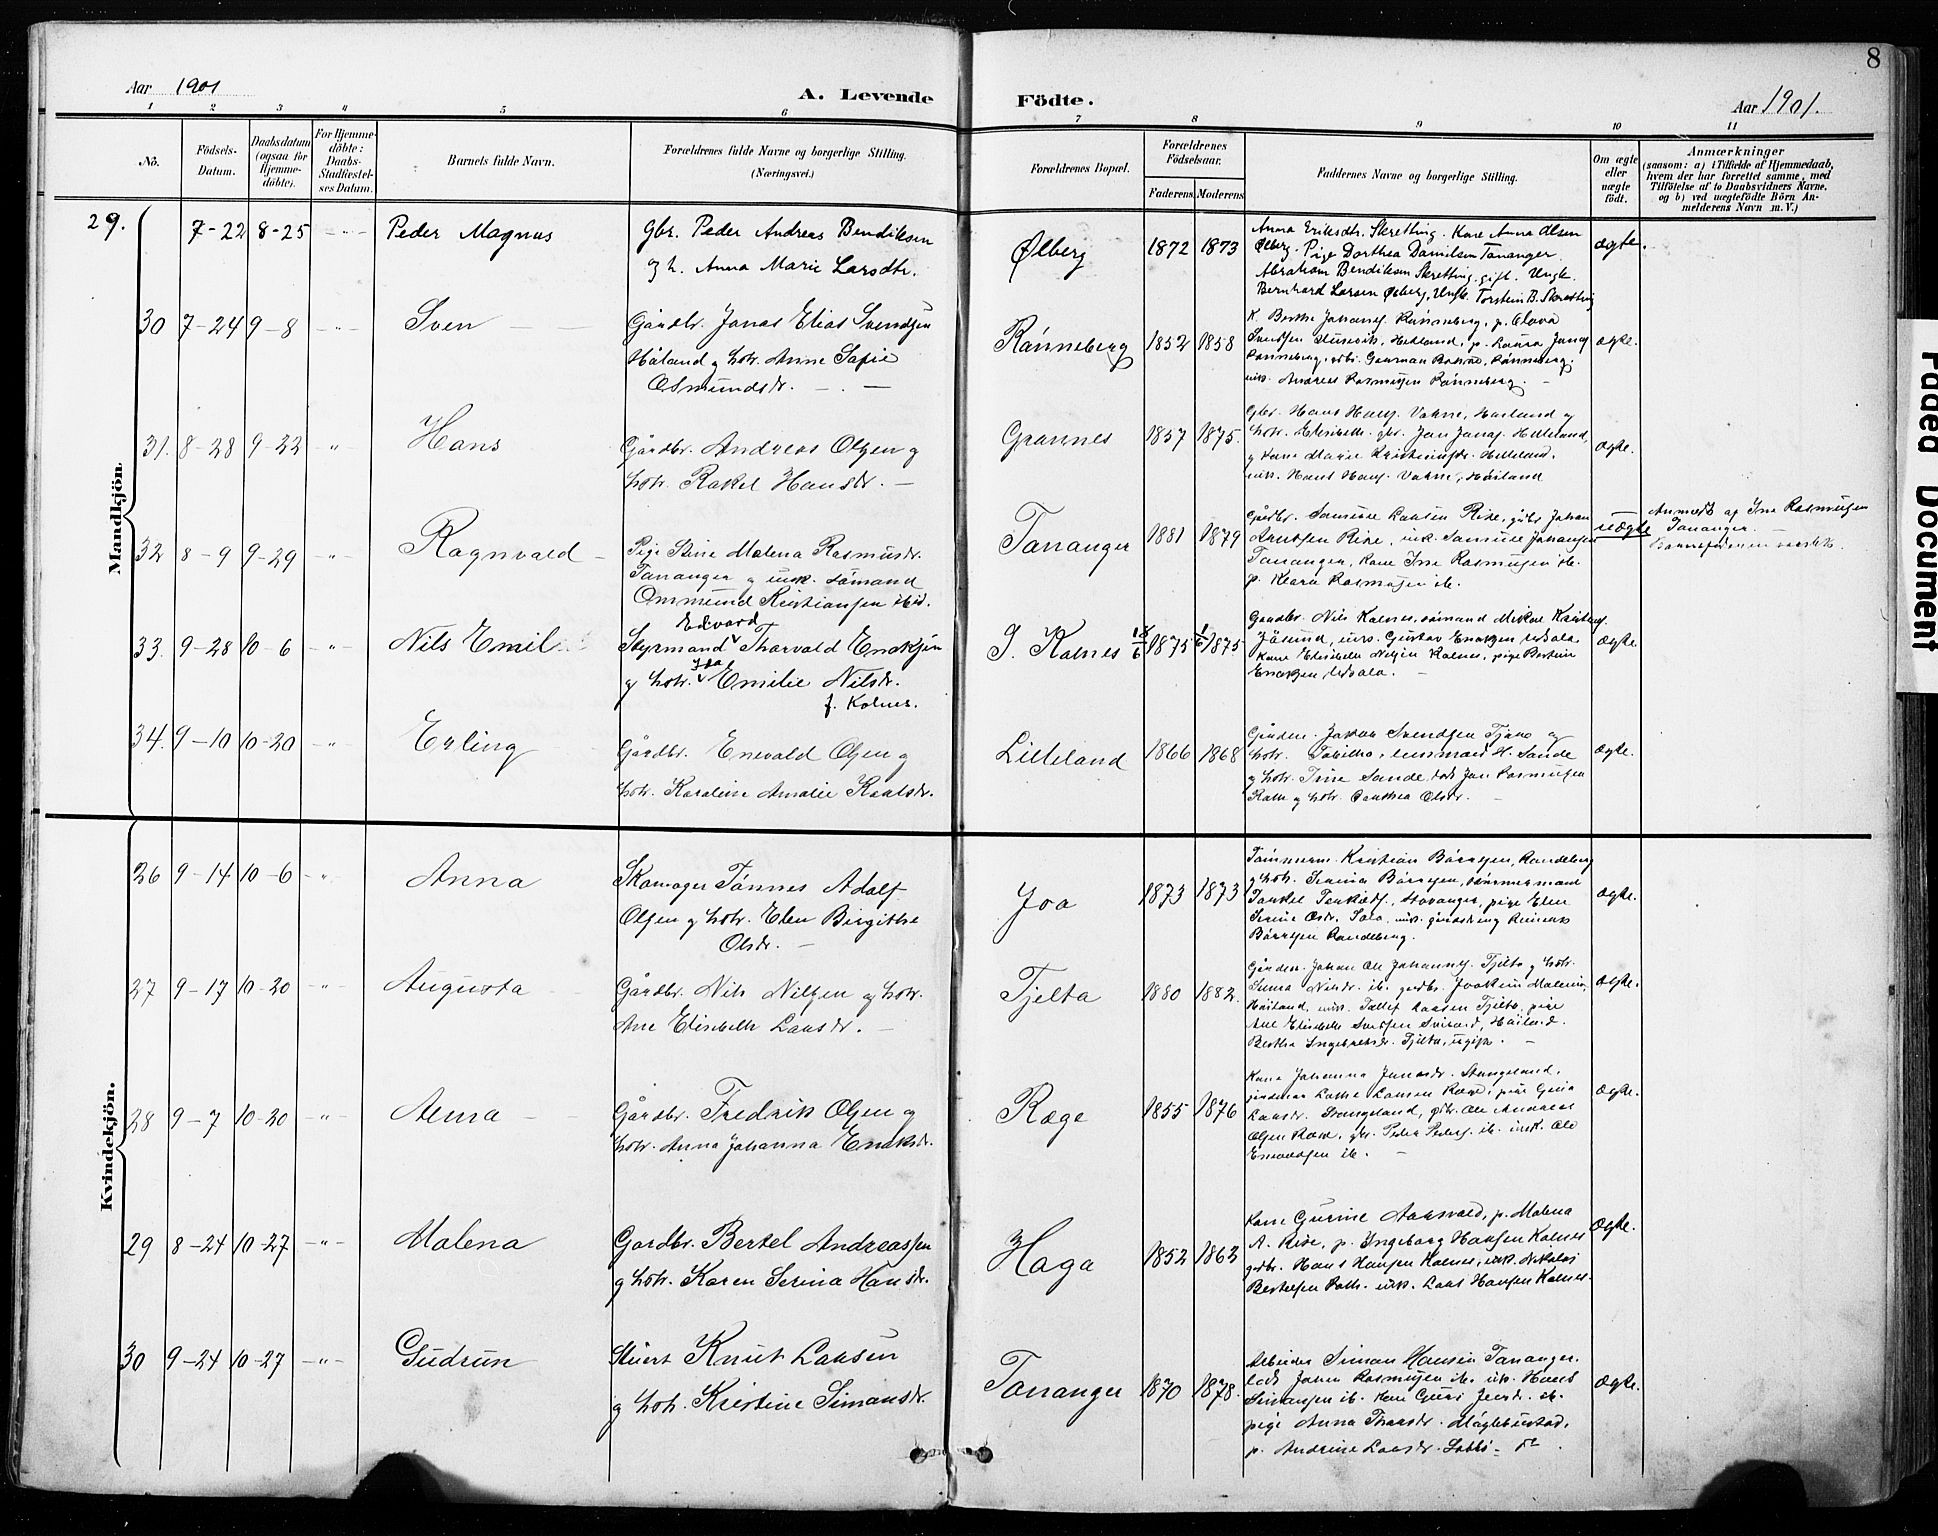 8
Aar 1901
A. Levende Födte.
Aar 1901.
1 2 3 4 5 6 7 8 9 10 11
No.
Födsels-
Datum.
Daabsdatum
(ogsaa for
Hjemme-
döbte).
For Hjemme-
döbte:
Daabs-
Stadfæstel-
ses Datum.
Barnets fulde Navn.
Forældrenes fulde Navne og borgerlige Stilling.
(Næringsvei.)
Forældrenes Bopæl.
Forældrenes
Födselsaar.
Faderens Moderens
Faddernes Navne og borgerlige Stilling.
Om ægte
eller
uægte
födt.
Anmærkninger
(saasom: a) i Tilfælde af Hjemmedaab,
hvem der har forrettet samme, med
Tilföielse af to Daabsvidners Navne,
og b) ved uægtefödte Börn An-
melderens Navn m. V.)
Mandkjön.
29. 7-22 8-25 -"- Peder Magnus
Gbr. Peder Andreas Bendiksen
og h. Anna Marie Larsdtr.
Ølberg 1872 1873
Anna Eriksdtr. Skretting. Kone Anna Olsen
Ølberg. Pige Dorthea Danielsen Tananger.
Abraham Bendiksen Skretting, gift. Ungk.
Bernhard Larsen Ølberg, Ungk. Torstein B. Skretting
ægte.
30 7-24 9-8 -"- Sven
Gårdbr. Jonas Elias Svendsen
Håland og hstr. Anne Sofie
Osmundsdr.
Rønneberg 1852 1858
K. Berthe Johans. Rønneberg, p. Olava
Svendsen Husevik, Hetland, p. Laura Jonas
Rønneberg, gdbr. Gunman Rønneberg,
unk. Andreas Rasmussen Rønneberg.
ægte.
31. 8-28 9-22 " Hans
Gårdbr. Andreas Olsen og
hstr. Rakel Hansdr.
Grannes 1857 1875.
Gbr. Hans Hans. Vahne, Høiland og
hstr. Elisabeth, gbr. Jan Jans. Helleland,
og Kone Marie Kristensdr. Helleland.
unk. Hans Hans. Vahne, Høiland
ægte.
32 8-9 9-29 " Ragnvald
Pige Stine Malena Rasmusdr.
Tananger og unk. sømand
Ommund Kristiansen ibid.
Tananger 1881 1879
Gårdbr. Samuel Larsen Risa, gdbr. Johan
Arntsen Risa, unk. Samuel Johansen
Tananger, Kone Ine Rasmusen ib.
p. Klara Rasmusen ib.
uægte
Anmeldt af Ine Rasmusen
Tananger.
33. 9-28 10-6 " Nils Emil
Edvard
Styrmand Thorvald Enoksen
Ida
og hstr. Emilie Nilsdr.
f. Kolnes.
S. Kolnes 13/6 1875 1/6 1875
Gårdbr. Nils Kolnes, sømand Mikal
Jåsund, unk. Gustav Enoksen
Kone Elisabeth Nilsen Kolnes, pige Bertine
Enoksen
ægte.
34. 9-10 10-20 " Erling
Gårdbr. Enevald Olsen og
hstr. Karoline Amalie Karlsdr.
Lilleland 1866 1868
Gårdbr. Jakob Svendsen Tjøra og
hstr. Tabitha, H. Sande
og hstr. Ine Sande, Jan Rasmusen
Roth og hstr. Olsdr.
ægte.
Kvindekjön.
26 9-14 10-6 " Anna
Skomager Tønnes Adolf
Olsen og hstr. Elen Birgitha
Olsdr.
Joa 1873 1873
Tømmerm. Kristian Børresen, Randeberg
og hstr. Serina Børresen, tømmermand
Torkel Torkeds. Stavanger, pige Elen
Serine Osdr. Sola,
Børresen Randeberg.
ægte.
27 9-17 10-20 " Augusta
Gårdbr. Nils Nilsen og hstr.
Ane Elisabeth Larsdr.
Tjelta 1880 1882.
Gårdbr. Johan Ole Johannes. Tjelta og hstr.
Serina Nilsdr. ib. gårdbr. Joakim Malenius,
Høiland, unk. Tollef Larsen Tjelta, pige
Ane Elisabeth Svendsen Høiland.
Bertha Ingebretsdr. Tjelta, ugift.
ægte.
28 9-7 10-20 " Alma
Gårdbr. Fredrik Olsen og
hstr. Anna Johanna Eriksdr.
Ræge 1855 1876
Kone Johanna Jonasdr. Stangeland,
Larsen Ræge, pige Guria
Larsdr. Stangeland, gbr. Ole Andreas
Olsen Ræge, gbr. Peder Peders. ib. unk. Ole
Enevaldsen ib.
ægte.
29 8-24 10-27 -"- Malena
Gardbr. Bertel Andreassen
og hstr. Karen Serina Hansdr.
Haga 1852 1863
Kone Gurine Aarsvold, p. Malena
A. Risa, p. Ingeborg Hansen Kolnes
gardbr. Hans Hansen Kolnes, unk. Nikolai
Bertelsen Roth. unk. Lars Hansen Kolnes.
ægte.
30 9-24 10-27 -"- Gudrun
Stuert Knut Larsen
og hstr. Kristine Simonsdr.
Tananger 1870 1878.
Arbeider Simon Hansen Tananger.
lods Johan Rasmusen ib. unk. Hans
Simonsen ib. Kone Guri Jensdr. ib.
pige Anna Thorsdr. Maglebustad.
p. Andrine Larsdr.
ægte.
Paged Document